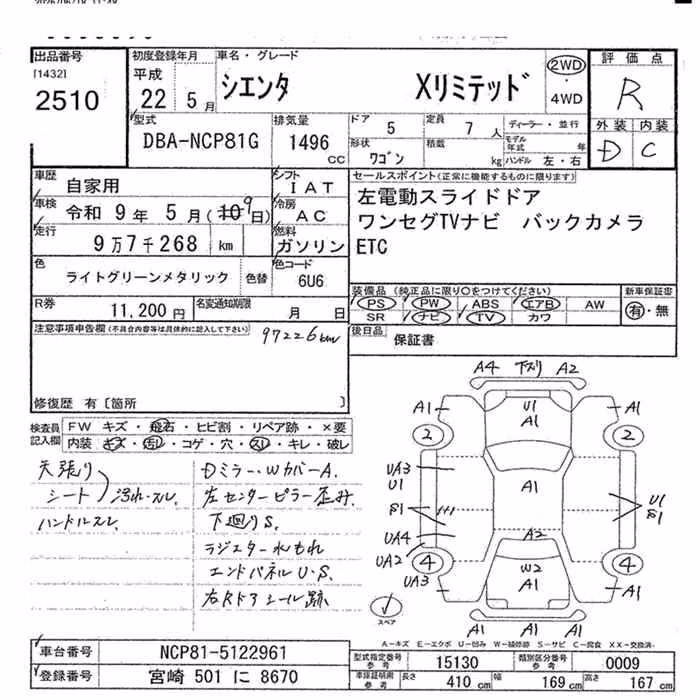 出品番号
[1432]
2510
初度登録年月
平成
22年 5月
車名・グレード
シエンタ Xリミテッド
2WD
・
4WD
評価点
R
外装 内装
D C
型式
DBA-NCP81G
排気量
1496
CC
ドア 5
定員 7 人
形状 ワゴン
積載 kg
ディーラー・並行
モデル年式 年
ハンドル 左・右
車歴 自家用
車検 令和 9年 5月(10 9日)
走行 9万7千268 km
シフト IAT
冷房 AC
燃料 ガソリン
セールスポイント(正常に機能するものに限ります)
左電動スライドドア
ワンセグTVナビ バックカメラ
ETC
色 ライトグリーンメタリック 色替
色コード 6U6
装備品(純正品に限り〇をつけてください)
PS PW ABS エアB AW
SR ナビ TV カワ
新車保証書
有・無
R券 11,200円
名変通知期限 月 日
後日品 保証書
注意事項申告欄(不具合内容等は具体的に記入して下さい)
97226km
修復歴 有〔箇所 〕
検査員記入欄
FW キズ・飛石・ヒビ割・リペア跡・×要
内装 キズ・汚れ・コゲ・穴・スレ・キレ・破レ
天張り
シート 汚れ・スレ
ハンドルスレ
Dミラー・Wカバー A.
左センターピラー歪み.
下廻りS.
ラジエター水もれ
エンドパネルU・S.
右Rドアシール跡
A4 下スリ A2
A1 U1 A1
A1
2 2
UA3
U1
A1
S1
U1
S1
UA4
A2
UA2
4 4
W2
UA3
A1
A1
スペア
A1 A1 A1
A-キズ E-エクボ U-凹み W-補修跡 S-サビ C-腐食 XX-交換済
車台番号 NCP81-5122961
登録番号 宮崎 501 に 8670
型式指定番号 参考 15130
類別区分番号 参考 0009
車庫証明用 参考
長さ 410 cm 幅 169 cm 高さ 167 cm